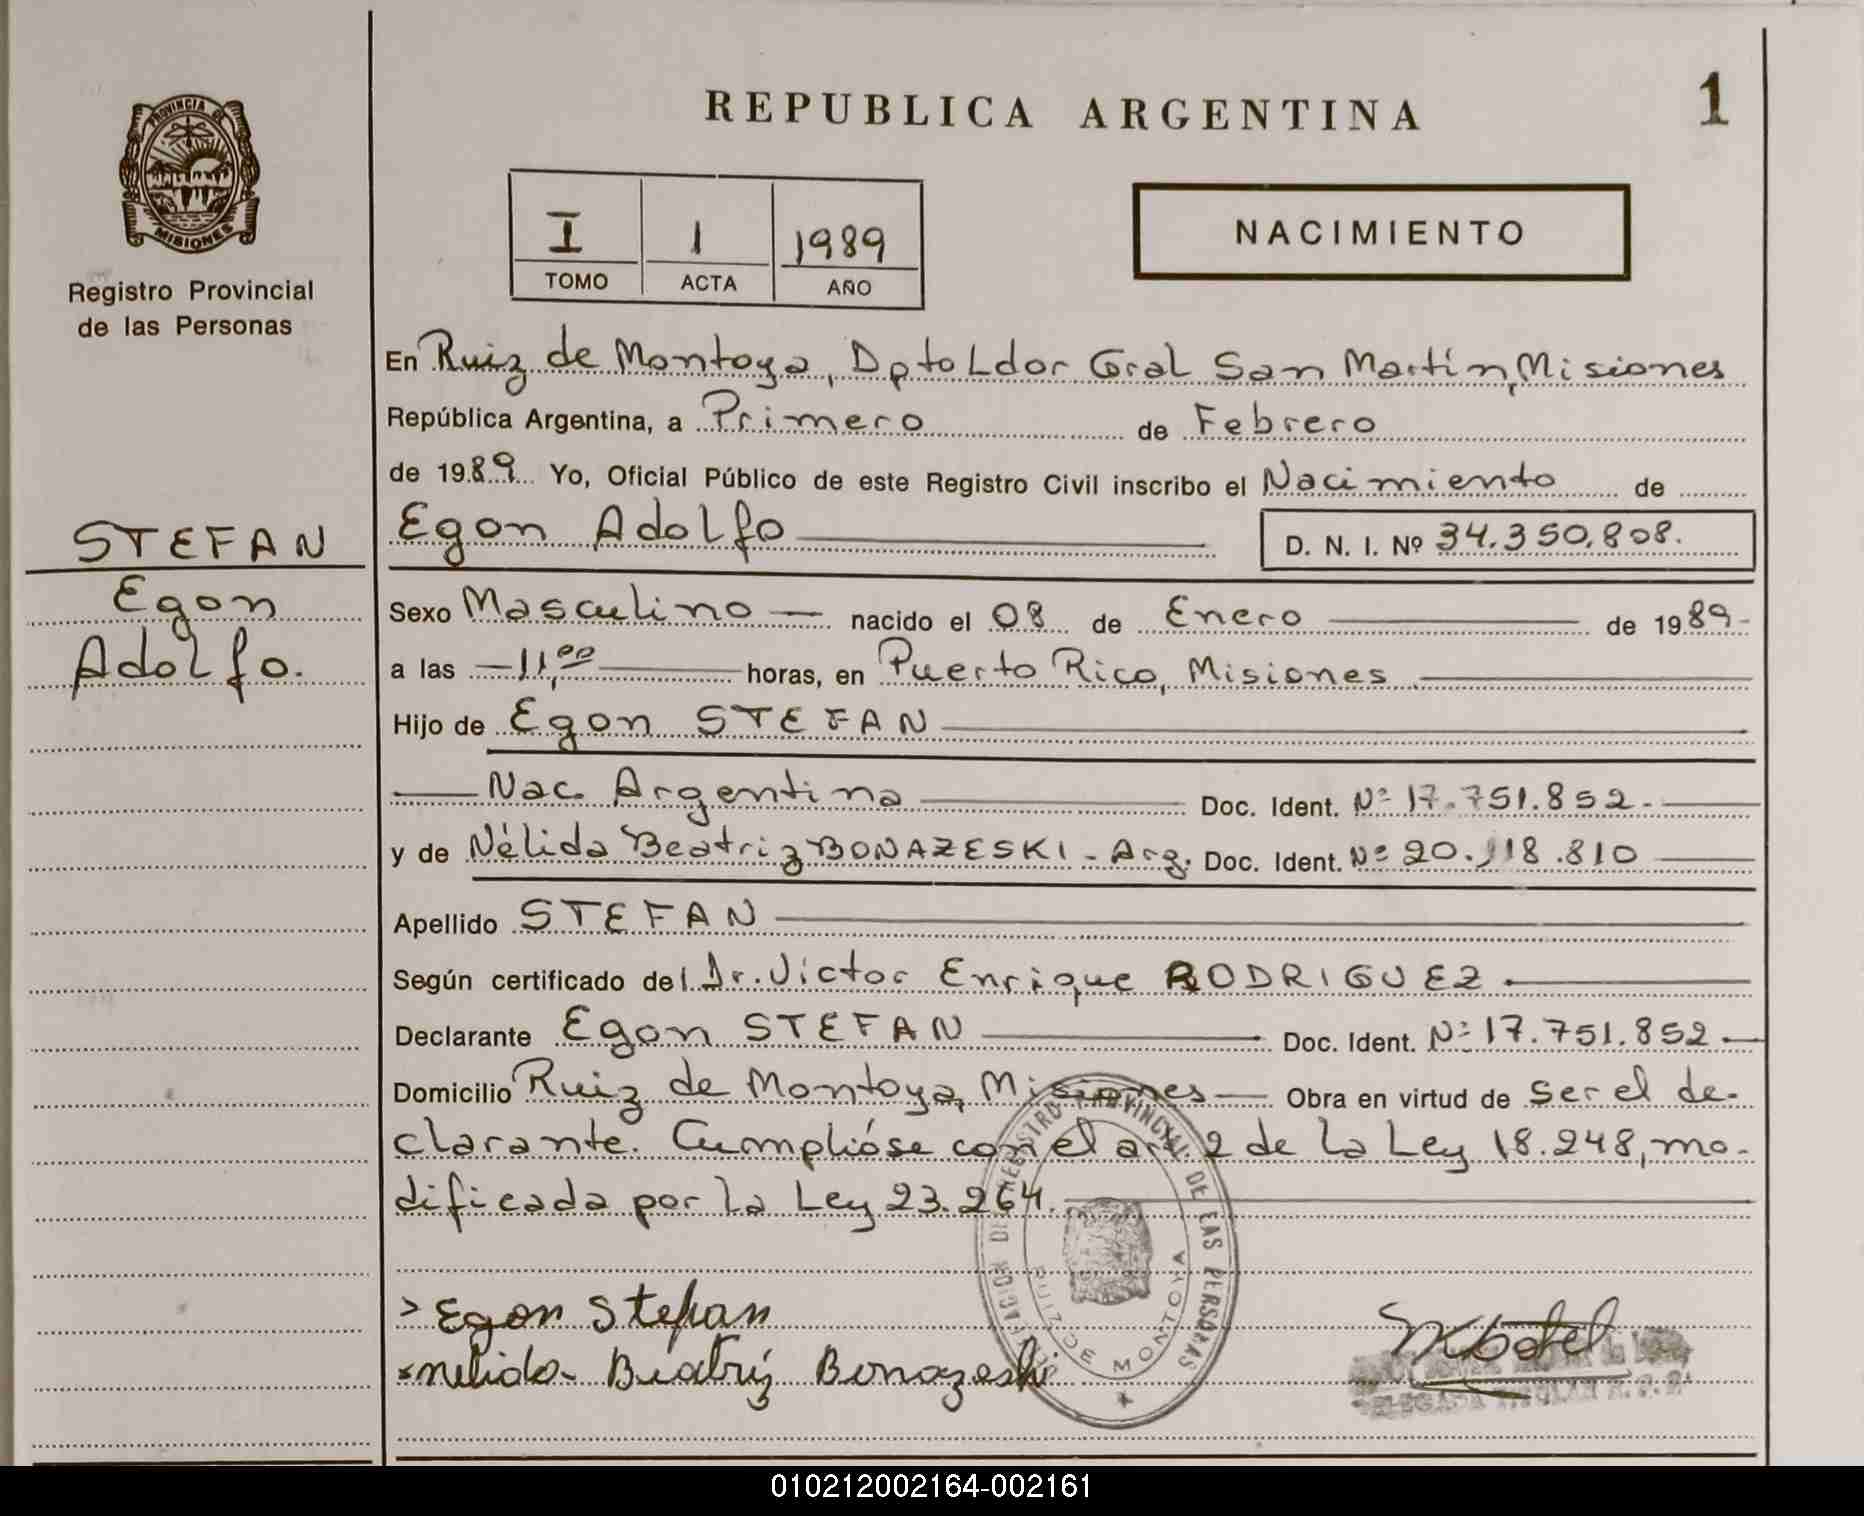 PROVINCIA DE
MISIONES
Registro Provincial
de las Personas
STEFAN
Egon
Adolfo.
REPUBLICA ARGENTINA
1
I 1 1989
TOMO ACTA AÑO
NACIMIENTO
En Ruiz de Montoya, Dpto Ldor Gral San Martín, Misiones
República Argentina, a Primero de Febrero
de 1989 Yo, Oficial Público de este Registro Civil inscribo el Nacimiento de
Egon Adolfo D. N. I. Nº 34.350.808.
Sexo Masculino — nacido el 08 de Enero — de 1989-
a las — 11,00 — horas, en Puerto Rico, Misiones
Hijo de Egon STEFAN
— Nac. Argentina — Doc. Ident. Nº 17.751.852.—
y de Nélida Beatriz BONAZESKI - Arg. Doc. Ident. Nº 20.118.810
Apellido STEFAN
Según certificado del Dr. Victor Enrique RODRIGUEZ.
Declarante Egon STEFAN — Doc. Ident. Nº 17.751.852.—
Domicilio Ruiz de Montoya, Misiones — Obra en virtud de ser el de-
clarante. Cumplióse con el art. 2 de la Ley 18.248, mo-
dificada por la Ley 23.264.
> Egon Stefan
Nelida Beatriz Bonazeski
REGISTRO PROVINCIAL DE LAS PERSONAS
RUIZ DE MONTOYA
010212002164-002161